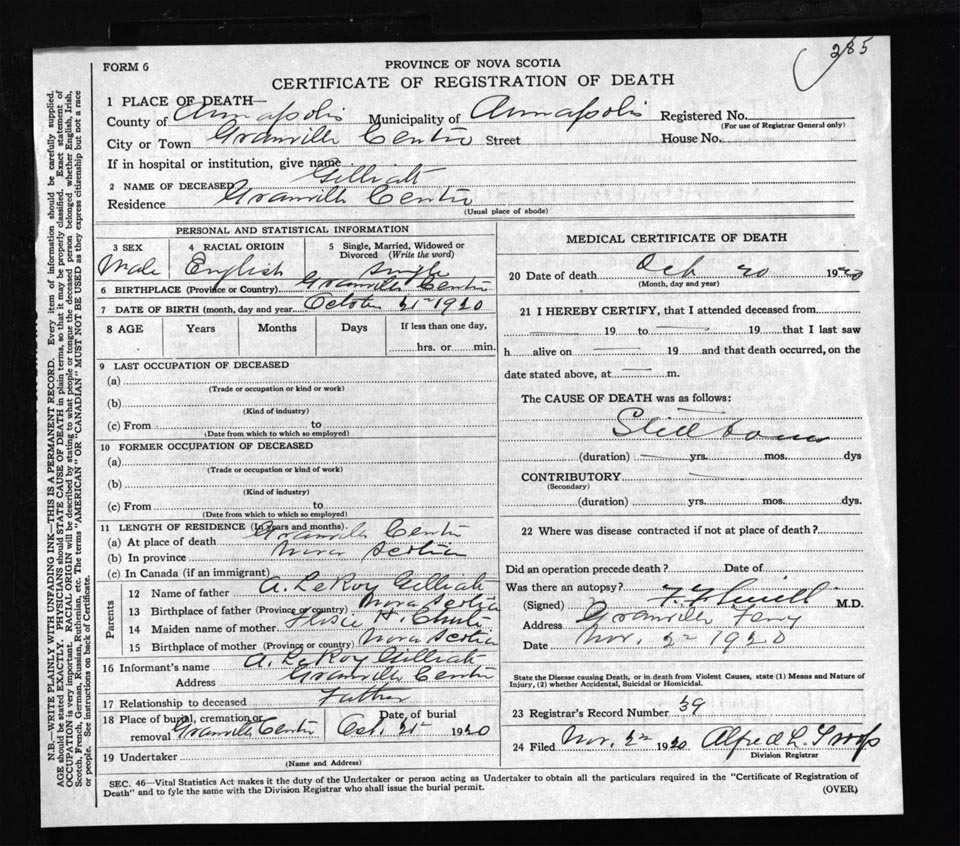 285
FORM 6
PROVINCE OF NOVA SCOTIA
CERTIFICATE OF REGISTRATION OF DEATH
1 PLACE OF DEATH—
County of Annapolis Municipality of Annapolis Registered No.
(For use of Registrar General only)
City or Town Granville Centre Street House No.
If in hospital or institution, give name
2 NAME OF DECEASED Gilliatt
Residence Granville Centre
(Usual place of abode)
PERSONAL AND STATISTICAL INFORMATION
3 SEX 4 RACIAL ORIGIN 5 Single, Married, Widowed or
Divorced (Write the word)
Male English Single
6 BIRTHPLACE (Province or Country) Granville Centre
7 DATE OF BIRTH (month, day and year) October 1920
8 AGE Years Months Days If less than one day,
hrs. or min.
9 LAST OCCUPATION OF DECEASED
(a)
(Trade or occupation or kind or work)
(b)
(Kind of industry)
(c) From to
(Date from which to which so employed)
10 FORMER OCCUPATION OF DECEASED
(a)
(Trade or occupation or kind or work)
(b)
(Kind of industry)
(c) From to
(Date from which to which so employed)
11 LENGTH OF RESIDENCE (In years and months).
(a) At place of death Granville Centre
(b) In province Nova Scotia
(c) In Canada (if an immigrant)
Parents
12 Name of father A. LeRoy Gilliatt
13 Birthplace of father (Province or country) Nova Scotia
14 Maiden name of mother H.
15 Birthplace of mother (Province or country) Nova Scotia
16 Informant's name A. LeRoy Gilliatt
Address Granville Centre
17 Relationship to deceased Father
18 Place of burial, cremation or removal Granville Centre Date of burial Oct. 21 1920
19 Undertaker
(Name and Address)
MEDICAL CERTIFICATE OF DEATH
20 Date of death Oct 20 19
(Month, day and year)
21 I HEREBY CERTIFY, that I attended deceased from
19 to 19 that I last saw
h alive on 19 and that death occurred, on the
date stated above, at m.
The CAUSE OF DEATH was as follows:
Still born
(duration) yrs. mos. dys
CONTRIBUTORY
(Secondary)
(duration) yrs. mos. dys.
22 Where was disease contracted if not at place of death?
Did an operation precede death? Date of
Was there an autopsy?
(Signed) M.D.
Address Granville Ferry
Date Nov. 1920
State the Disease causing Death, or in death from Violent Causes, state (1) Means and Nature of
Injury, (2) whether Accidental, Suicidal or Homicidal.
23 Registrar's Record Number 39
24 Filed Nov. 1920 Alfred L. Troop
Division Registrar
SEC. 46—Vital Statistics Act makes it the duty of the Undertaker or person acting as Undertaker to obtain all the particulars required in the "Certificate of Registration of
Death" and to fyle the same with the Division Registrar who shall issue the burial permit.
(OVER)
N.B.—WRITE PLAINLY WITH UNFADING INK—THIS IS A PERMANENT RECORD. Every item of information should be carefully supplied.
AGE should be stated EXACTLY. PHYSICIANS should STATE CAUSE OF DEATH in plain terms, so that it may be properly classified. Exact statement of
OCCUPATION is very important. RACIAL ORIGIN will be described by stating to what people or tongue the deceased person belonged whether English, Irish,
Scotch, French, German, Russian, Ruthenian, etc. The terms "AMERICAN" OR "CANADIAN" MUST NOT BE USED as they express citizenship but not a race
or people. See instructions on back of Certificate.